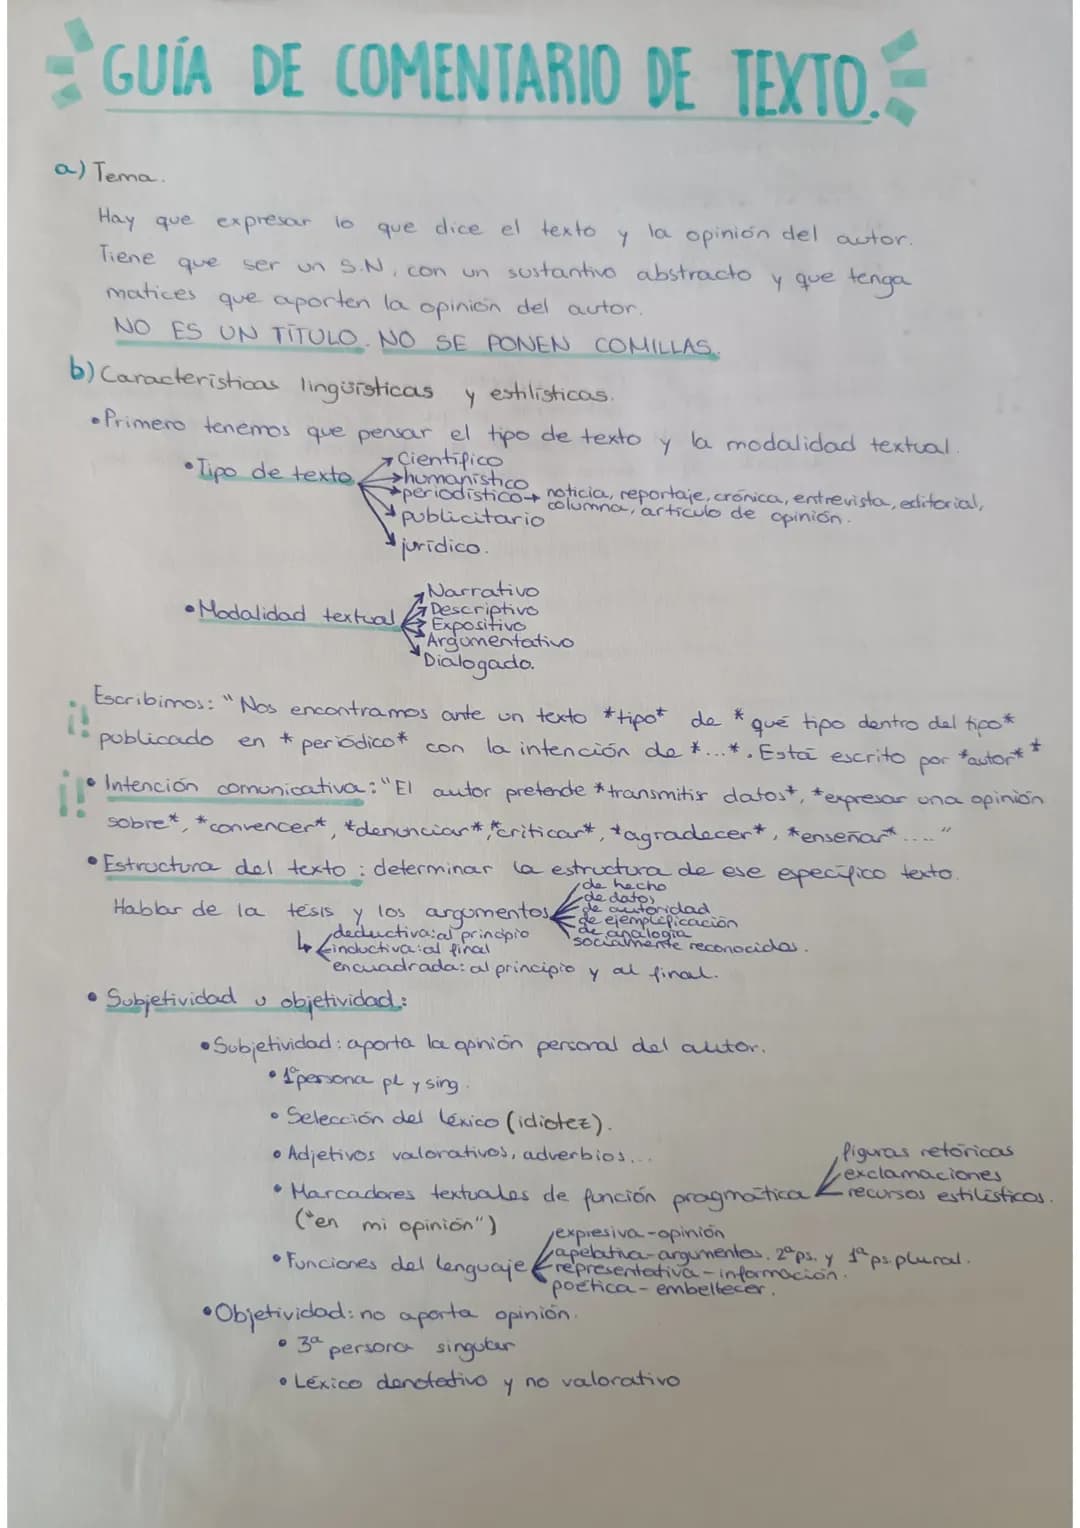 GUÍA DE COMENTARIO DE TEXTO.
a) Tema.
Hay que expresar lo que dice el texto y la opinión del autor.
Tiene que ser un S.N, con un sustantivo abstracto y que tenga
matices que aporten la opinión del autor.
NO ES UN TÍTULO. NO SE PONEN COMILLAS.
b) Características lingüísticas y estilísticas.
• Primero tenemos que pensar el tipo de texto y la modalidad textual.
• Tipo de texto
Científico
humanístico
periodístico → noticia, reportaje, crónica, entrevista, editorial,
columna, artículo de opinión.
publicitario
jurídico.
• Modalidad textual
Narrativo
Descriptivo
Expositivo
Argumentativo
Dialogado.
¡! Escribimos: "Nos encontramos ante un texto *tipo* de *qué tipo dentro del tipo*
publicado en *periódico* con la intención de *...*. Está escrito por *autor* *
¡! • Intención comunicativa: "El autor pretende *transmitir datos*, *expresar una opinión
sobre*, *convencer*, *denunciar*, *criticar*, *agradecer*, *enseñar* ...."
• Estructura del texto: determinar la estructura de ese específico texto.
Hablar de la tésis y los argumentos
de hecho
de datos
de autoridad
de ejemplificación
de analogía
socialmente reconocidos.
deductiva: al principio
inductiva: al final
encuadrada: al principio y al final.
• Subjetividad u objetividad:
• Subjetividad: aporta la opinión personal del autor.
• 1ª persona pl y sing.
• Selección del léxico (idiotez).
• Adjetivos valorativos, adverbios...
• Marcadores textuales de función pragmática
("en mi opinión")
figuras retóricas
exclamaciones
recursos estilísticos.
• Funciones del lenguaje
expresiva - opinión
apelativa - argumentos. 2ª ps. y 1ª ps. plural.
representativa - información.
poética - embellecer.
• Objetividad: no aporta opinión.
• 3ª persona singular
• Léxico denotativo y no valorativo